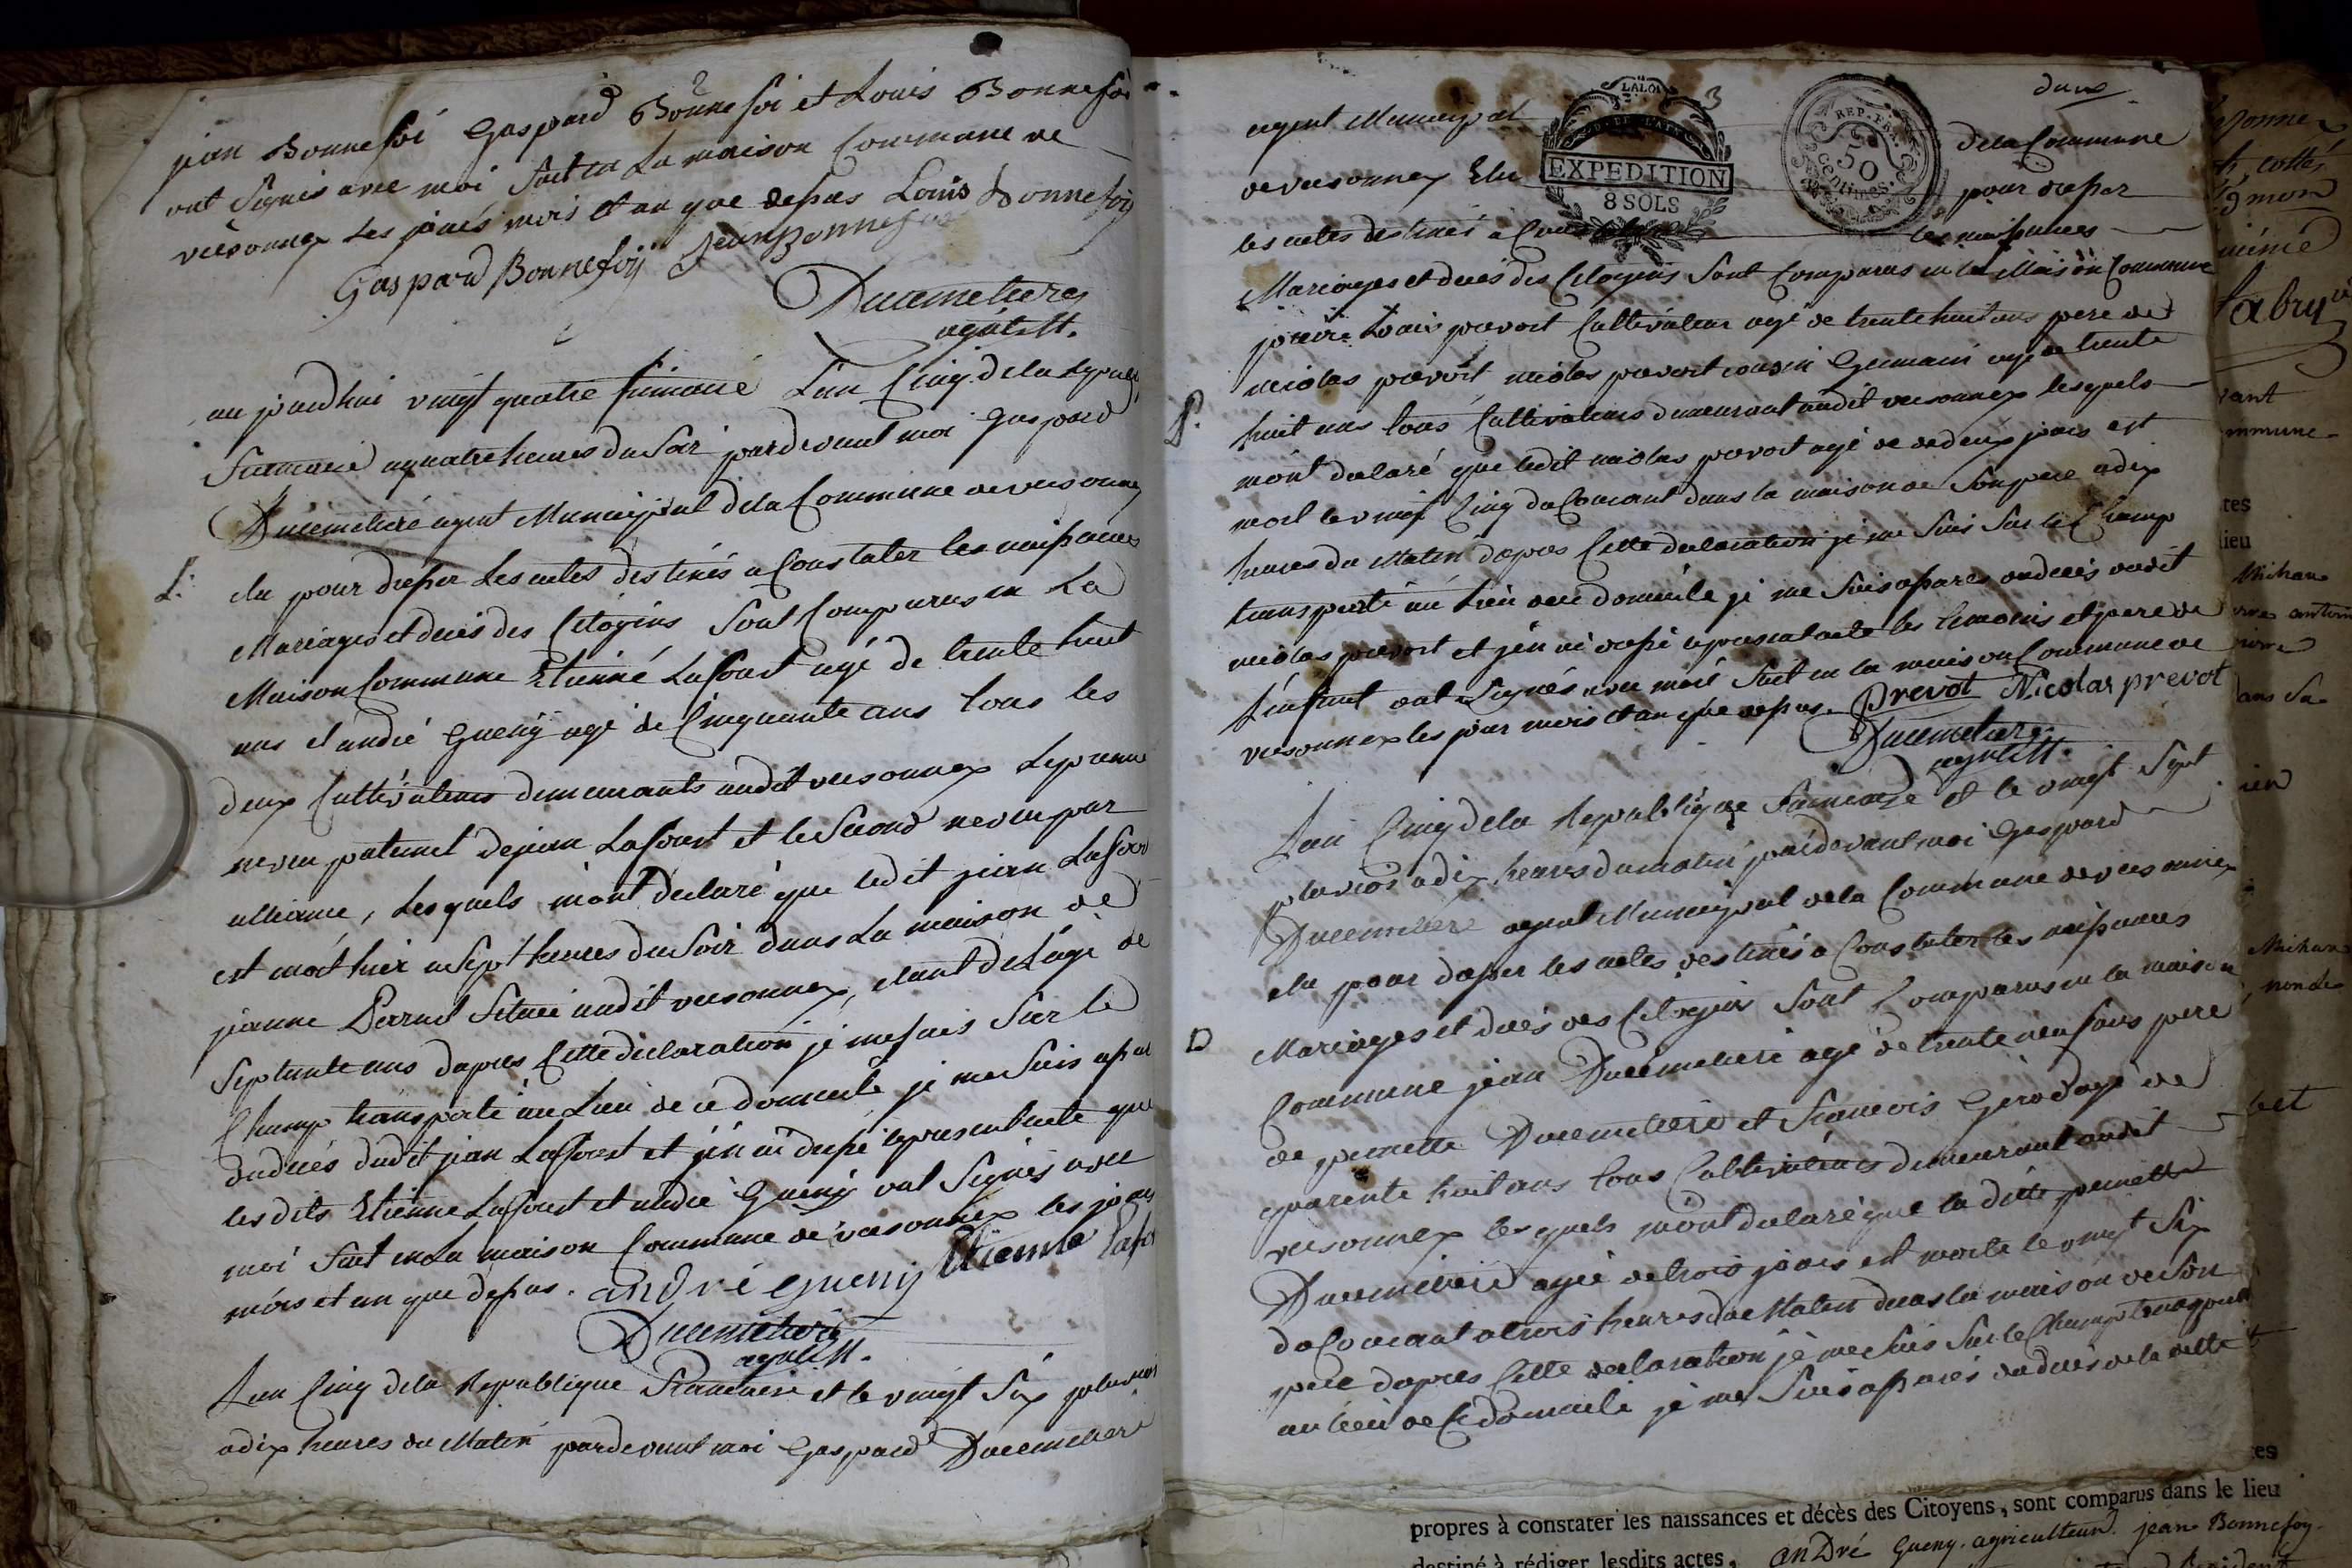 2
jean Bonnefoi Gaspard Bonnefoi et Louis Bonnefoi
ont Signés avec moi fait en La maison Commune de
versonnex Les jours mois et an que dessus Louis Bonnefoy
Gaspard Bonnefoy Jean Bonnefoi
Ducimetiere
agent M.
aujourdhui vingt quatre frimaire L'an Cinq de la republ
francaise a quatre heures du Soir pardevant moi Gaspard
Ducimetiere agent Municipal dela Commune de versonnex
L.
élu pour dresser Les actes destinés a Constater les naissances
Mariages et decès des Citoyens Sont Comparus en La
Maison Commune Etienne Lafont agé de trente huit
ans et andré Gueny agé de Cinquante ans tous les
deux Cultivateurs demeurants audit versonnex Le premier
neveu paternel de jean Lafont et le Second neveu par
alliance, Lesquels m'ont declaré que ledit jean
est mort hier a Sept heures du Soir dans La maison de
jeanne Perrnet Situee audit versonnex, etant de L'age de
Septante ans dapres Cette declaration je me suis Sur le
Champ transporté au Lieu de ce domicile je me Suis assuré
du decés dudit jean et j'en ai dressé le present acte que
les dits Etienne et andré Gueny ont Signés avec
moi fait en La maison Commune de versonnex les jours
mois et an que dessus. andré gueny Etienne
Ducimetiere
agent M.
L'an Cinq dela Republique Francaise et le vingt Six pluviose
a dix heures du Matin pardevant moi Gaspard Ducimetiere
3
deux
LA LOI
EXPEDITION
8 SOLS
REP. FRA.
50
centimes.
agent Municipal dela Commune
de versonnex Elu pour dresser
les actes destinés a Constater les naissances
Mariages et decès des Citoyens Sont Comparus en la Maison Commune
Louis prevost Cultivateur agé de trente huit ans pere de
nicolas prevost nicolas prevost cousin Germain agé de trente
P.
huit ans tous Cultivateurs demeurant audit versonnex lesquels
m'ont declaré que ledit nicolas prevost agé de deux jours est
mort le vingt Cinq du Courant dans la maison de Son pere a dix
heures du Matin dapres Cette declaration je me Suis Sur le Champ
transporté au Lieu de ce domicile je me Suis assuré du decès dudit
nicolas prevost et j'en ai dressé le present acte les temoins et pere de
l'enfant ont Signés avec moi fait en la maison Commune de
versonnex les jour mois et an que dessus. Prevot Nicolas prevot
Ducimetiere
agent M.
L'an Cinq dela Republique Francaise et le vingt Sept
pluviose a dix heures du matin pardevant moi Gaspard
Ducimetiere agent Municipal de la Commune de versonnex
élu pour dresser les actes destinés a Constater les naissances
D
Mariages et decès des Citoyens Sont Comparus en la maison
Commune jean Ducimetiere agé de trente neuf ans pere
de pernette Ducimetiere et francois Gerod agé de
quarente huit ans tous Cultivateurs demeurant audit
versonnex lesquels m'ont declaré que la ditte pernette
Ducimetiere agée de trois jours est morte le vingt Six
du Courant a trois heures du Matin dans la maison de Son
pere dapres Cette declaration je me Suis Sur le Champ transporté
au lieu de Ce domicile je me Suis assuré du decès de la ditte
fabry
mmune
vant
Michaux
propres à constater les naissances et décès des Citoyens, sont comparus dans le lieu
destiné à rédiger lesdits actes, anDré Gueny. agriculteur. jean Bonnefoy.